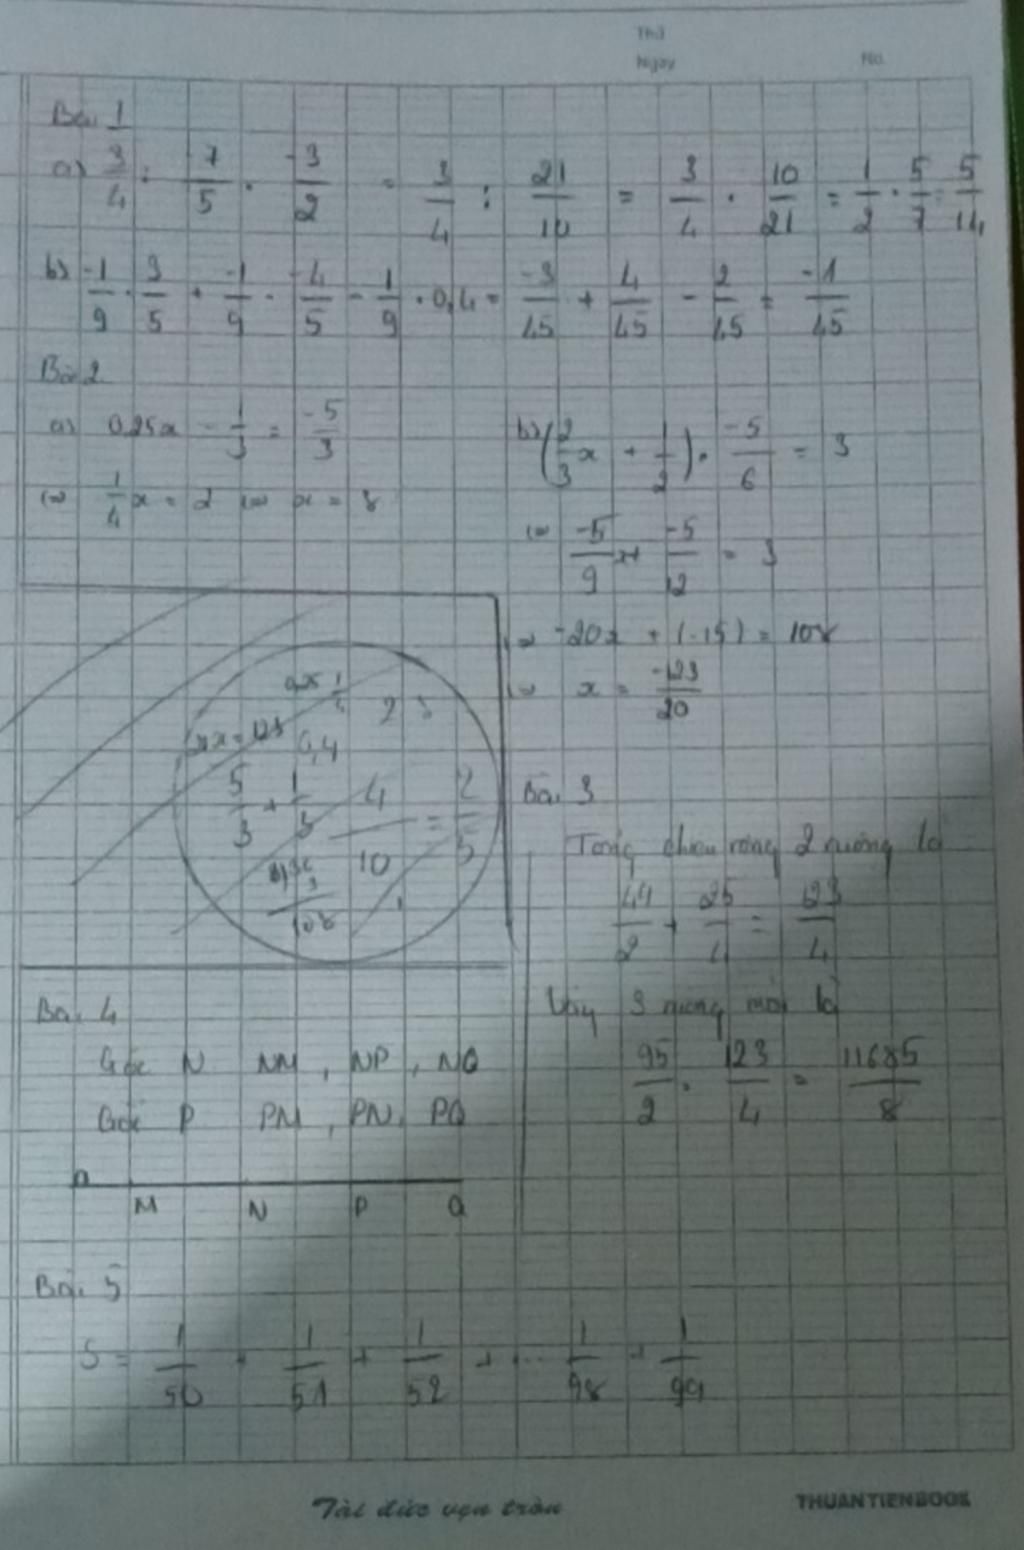 Thứ
Ngày No.
Bài 1
a) 3/4 : -7/5 . -3/2 = 3/4 : 21/10 = 3/4 . 10/21 = 1/2 . 5/7 = 5/14
b) -1/9 . 3/5 + -1/9 . -4/5 - 1/9 . 0,4 = -3/45 + 4/45 - 2/45 = -1/45
Bài 2
a) 0,25x - 1/3 = -5/3
⇔ 1/4 x = 2 ⇔ x = 8
b) (2/3 x + 1/2) . -5/6 = 3
⇔ -5/9 x + -5/12 = 3
⇔ -20x + (-15) = 108
⇔ x = -123/20
0,25 1/4
0,4
5/3 + 1/3
4/10 = 2/5
Bài 3
Tổng chiều rộng 2 ruộng là
44/2 + 25/4 = 123/4
Vậy 3 ruộng mới là
95/2 . 123/4 = 11685/8
Bài 4
Gốc N NM, NP, NQ
Gốc P PM, PN, PQ
M N P Q
Bài 5
S = 1/50 + 1/51 + 1/52 + ... 1/98 + 1/99
Tài đức vẹn tròn THUANTIENBOOK